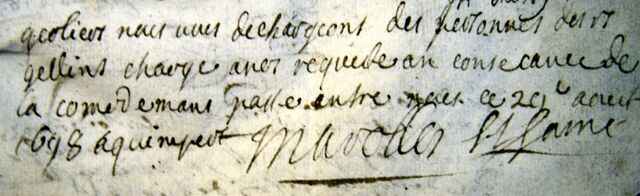 geoliers nous vous dechargeons des personnes desrs
gellins charge avec requeste an consecance de
la comedemans passe entre nous ce 29e aoust
1698 a quimper